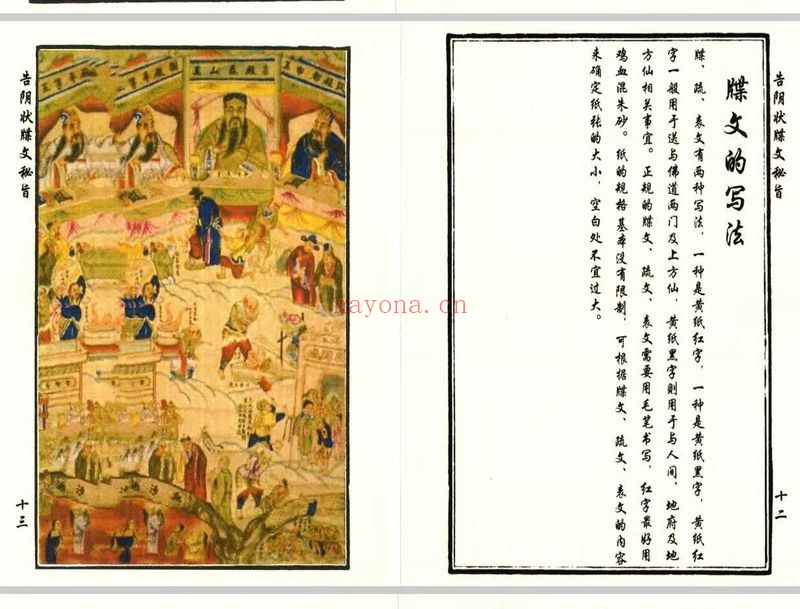 告阴状牒文秘旨
十二
牒文的写法
牒、疏、表文有两种写法，一种是黄纸红字，一种是黄纸黑字，黄纸红
字一般用于送与佛道两门及上方仙，黄纸黑字则用于与人间、地府及地
方仙相关事宜。正规的牒文、疏文、表文需要用毛笔书写，红字最好用
鸡血混朱砂。纸的规格基本没有限制，可根据牒文、疏文、表文的内容
来确定纸张的大小，空白处不宜过大。
告阴状牒文秘旨
十三
殿泰山王
nayona.cn